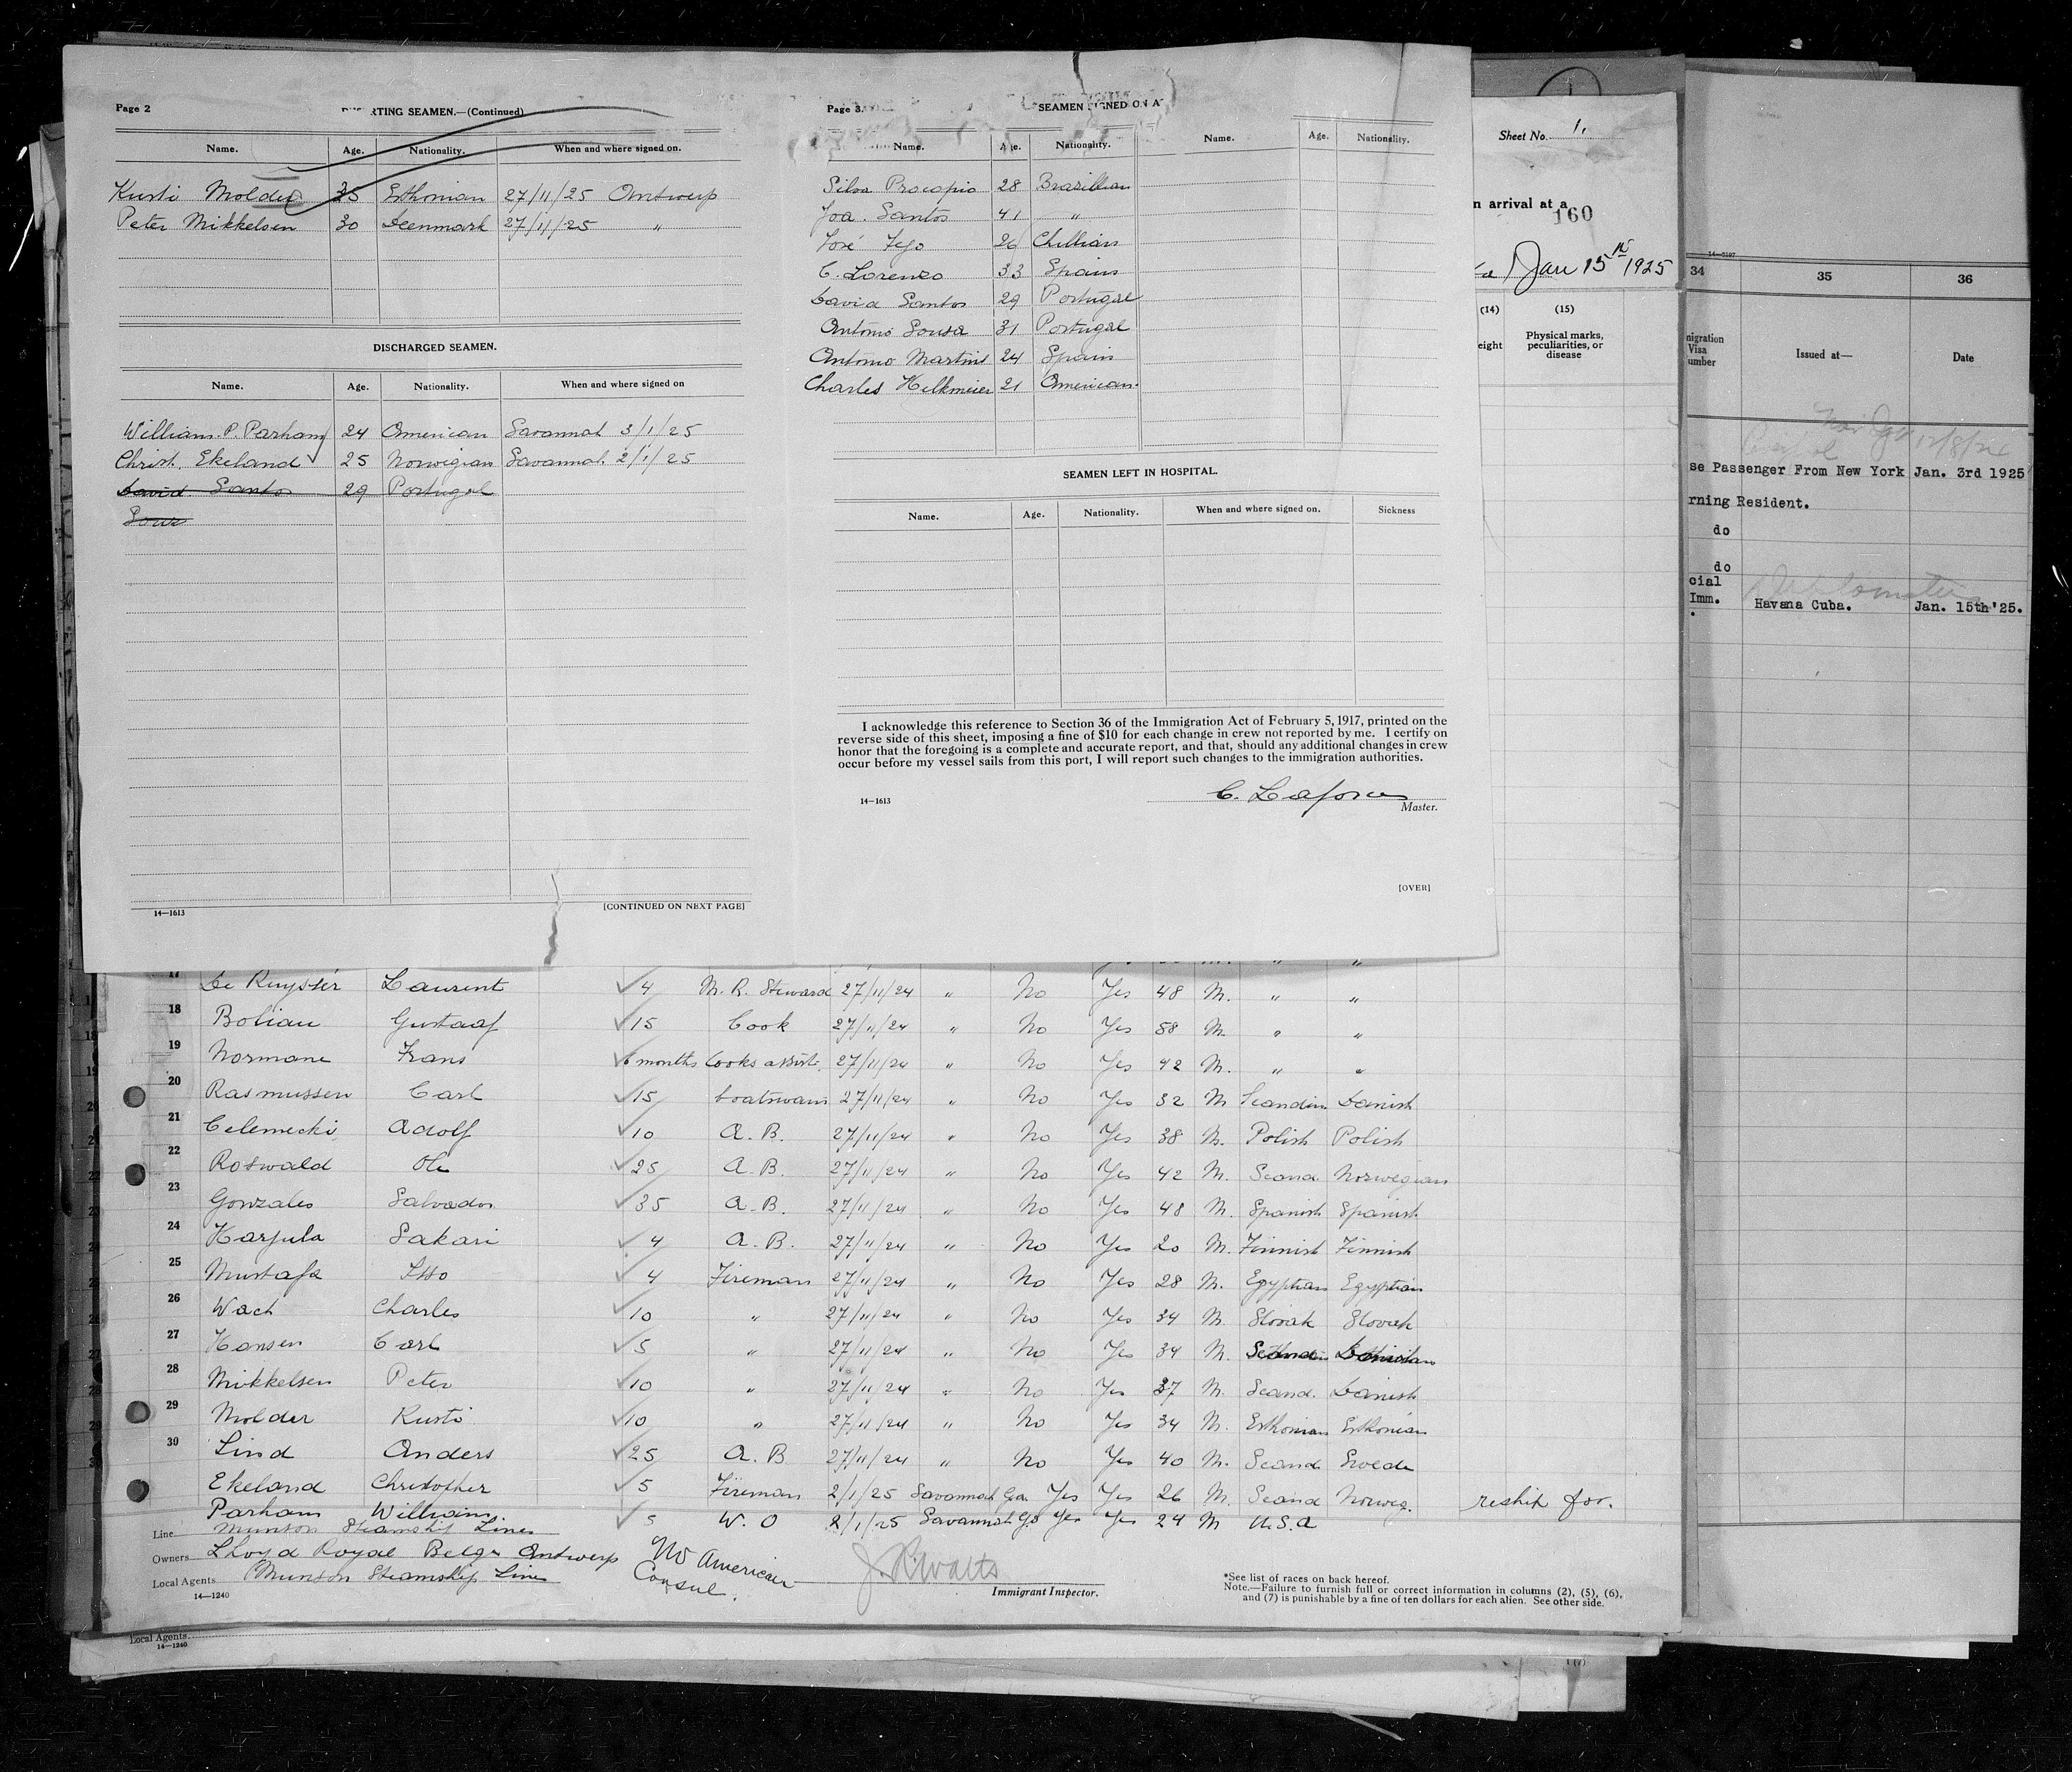 Page 2
RTING SEAMEN.—(Continued)
Name. Age. Nationality. When and where signed on.
Kusti Molder 35 Esthonian 27/11/25 Antwerp
Peter Mikkelsen 30 Deenmark 27/11/25 "
DISCHARGED SEAMEN.
Name. Age. Nationality. When and where signed on
William. P. Parham 24 American Savannah 3/1/25
Christ. Ekeland 25 Norwegian Savannah. 2/1/25
David Santos 29 Portugal
Sour
14—1613 [CONTINUED ON NEXT PAGE]
Page 3.
SEAMEN SIGNED ON A
Name. Age. Nationality. Name. Age. Nationality.
Silva Procopio 28 Brazillian
Joa. Santos 41 "
José Fejo 26 Chillian
C. Lorenzo 33 Spain
David Santos 29 Portugal
Antonio Sousa 31 Portugal
Antonio Martins 24 Spain
Charles Helkmeier 21 American.
SEAMEN LEFT IN HOSPITAL.
Name. Age. Nationality. When and where signed on. Sickness
I acknowledge this reference to Section 36 of the Immigration Act of February 5, 1917, printed on the
reverse side of this sheet, imposing a fine of $10 for each change in crew not reported by me. I certify on
honor that the foregoing is a complete and accurate report, and that, should any additional changes in crew
occur before my vessel sails from this port, I will report such changes to the immigration authorities.
14—1613 Master.
[OVER]
Sheet No. 1.
n arrival at a
160
Jan 15th 1925
(14) (15)
eight Physical marks, peculiarities, or disease
34 35 36
migration Visa umber Issued at— Date
12/8/24
se Passenger From New York Jan. 3rd 1925
rning Resident.
do
do
cial
Imm. Havana Cuba. Jan. 15th '25.
17 De Ruyster Laurent 4 M. R. Steward 27/11/24 " No Yes 48 M. " "
18 Bolian Gustaaf 15 Cook 27/11/24 " No Yes 58 M. " "
19 Normane Frans 6 months Cooks assist. 27/11/24 " No Yes 42 M. " "
20 Rasmussen Carl 15 boatswain 27/11/24 " No Yes 32 M Scandin Danish
21 Celemecki Adolf 10 A. B. 27/11/24 " No Yes 38 M. Polish Polish
22 Roswald Ole 25 A. B. 27/11/24 " No Yes 42 M. Scand Norwegian
23 Gonzales Salvador 35 A. B. 27/11/24 " No Yes 48 M. Spanish Spanish
24 Harjula Sakari 4 A. B. 27/11/24 " No Yes 20 M. Finnish Finnish
25 Mustafa Isso 4 Fireman 27/11/24 " No Yes 28 M. Egyptian Egyptian
26 Wach Charles 10 " 27/11/24 " No Yes 34 M. Slovak Slovak
27 Hansen Carl 5 " 27/11/24 " No Yes 34 M.
28 Mikkelsen Peter 10 " 27/11/24 " No Yes 37 M. Scand. Danish
29 Molder Kusti 10 " 27/11/24 " No Yes 34 M. Esthonian Esthonian
30 Lind Anders 25 A. B 27/11/24 " No Yes 40 M. Scand Swede
Ekeland Christopher 5 Fireman 2/1/25 Savannah Ga. Yes Yes 26 M. Scand Norweg. reship for.
Parham William. 5 W. O 2/1/25 Savannah Ga Yes Yes 24 M U.S.A
Line Munson Steamship Lines
Owners Lloyd Royal Belge Antwerp
Local Agents Munson Steamship Line
14—1240
No American
Consul.
Immigrant Inspector.
*See list of races on back hereof.
Note.—Failure to furnish full or correct information in columns (2), (5), (6),
and (7) is punishable by a fine of ten dollars for each alien. See other side.
Local Agents
14—1240